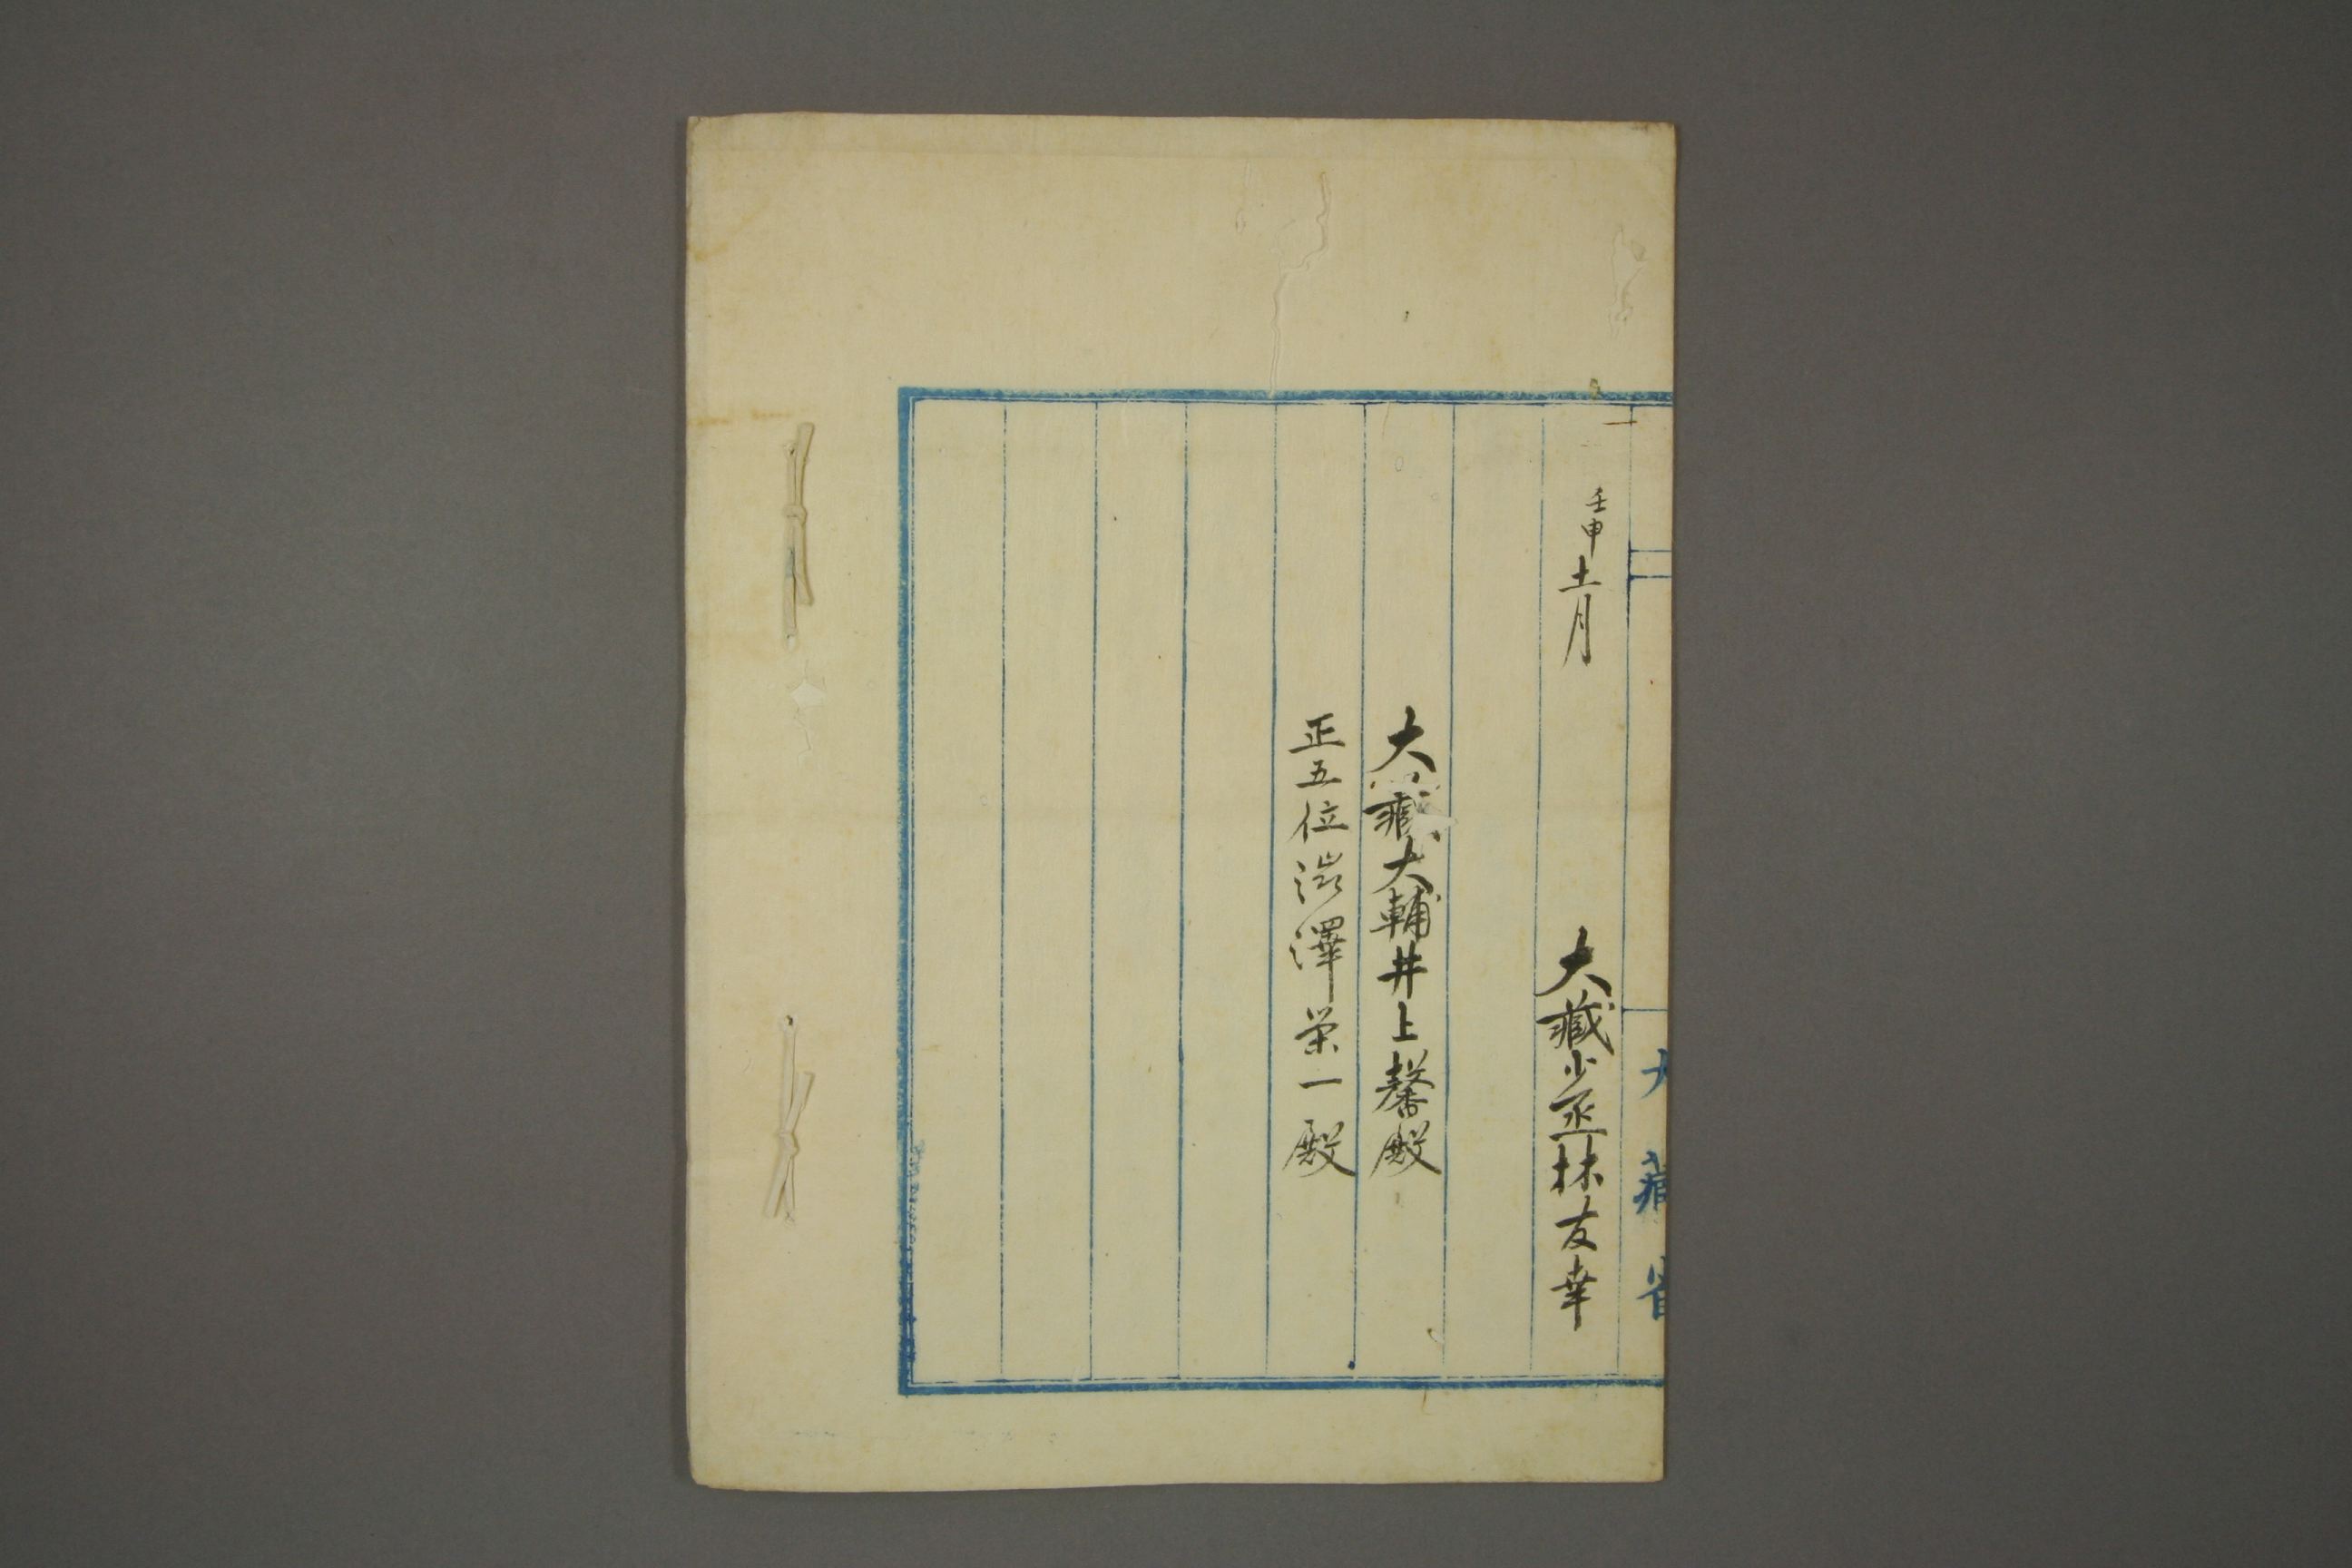 大藏省
壬申十一月
大藏少丞林友幸
大藏大輔井上馨殿
正五位渋澤栄一殿